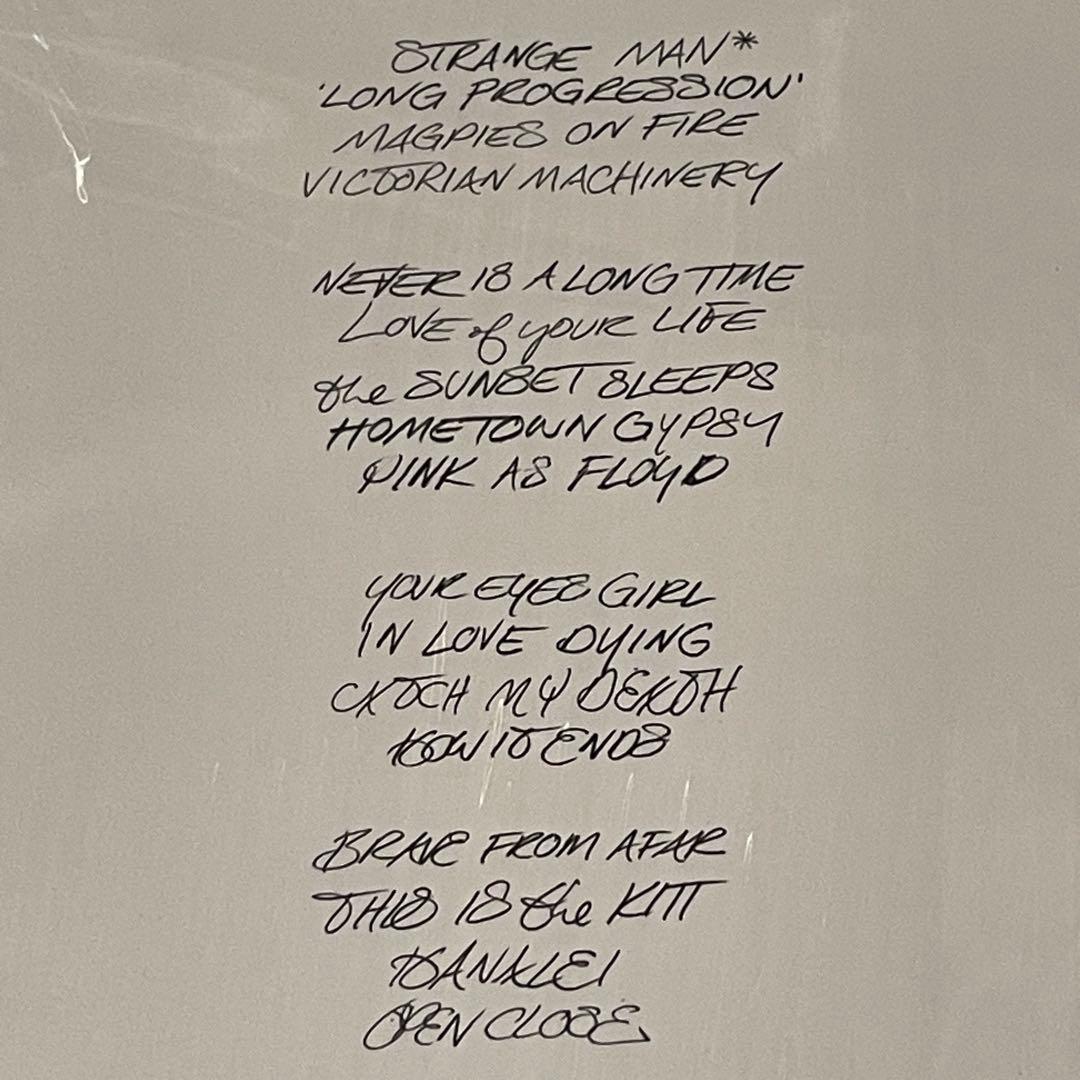 STRANGE MAN*
'LONG PROGRESSION'
MAGPIES ON FIRE
VICTORIAN MACHINERY
NEVER IS A LONG TIME
LOVE of YOUR LIFE
the SUNSET SLEEPS
HOMETOWN GYPSY
PINK AS FLOYD
YOUR EYES GIRL
IN LOVE DYING
CATCH MY DEATH
HOW IT ENDS
BRAVE FROM AFAR
THIS IS the KITT
OPEN CLOSE